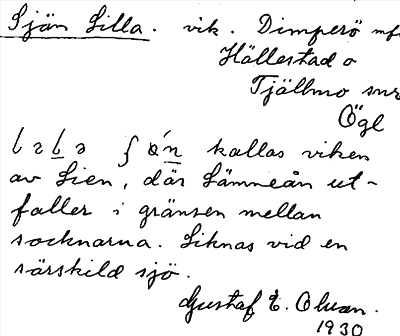 Sjön Lilla. vik. Dimperö mfl
Hällestad o
Tjällmo snr
Ögl
kallas viken
av Sien, där Lämneån ut-
faller i gränsen mellan
socknarna. Liknas vid en
särskild sjö.
Gustaf E. Olsson.
1930